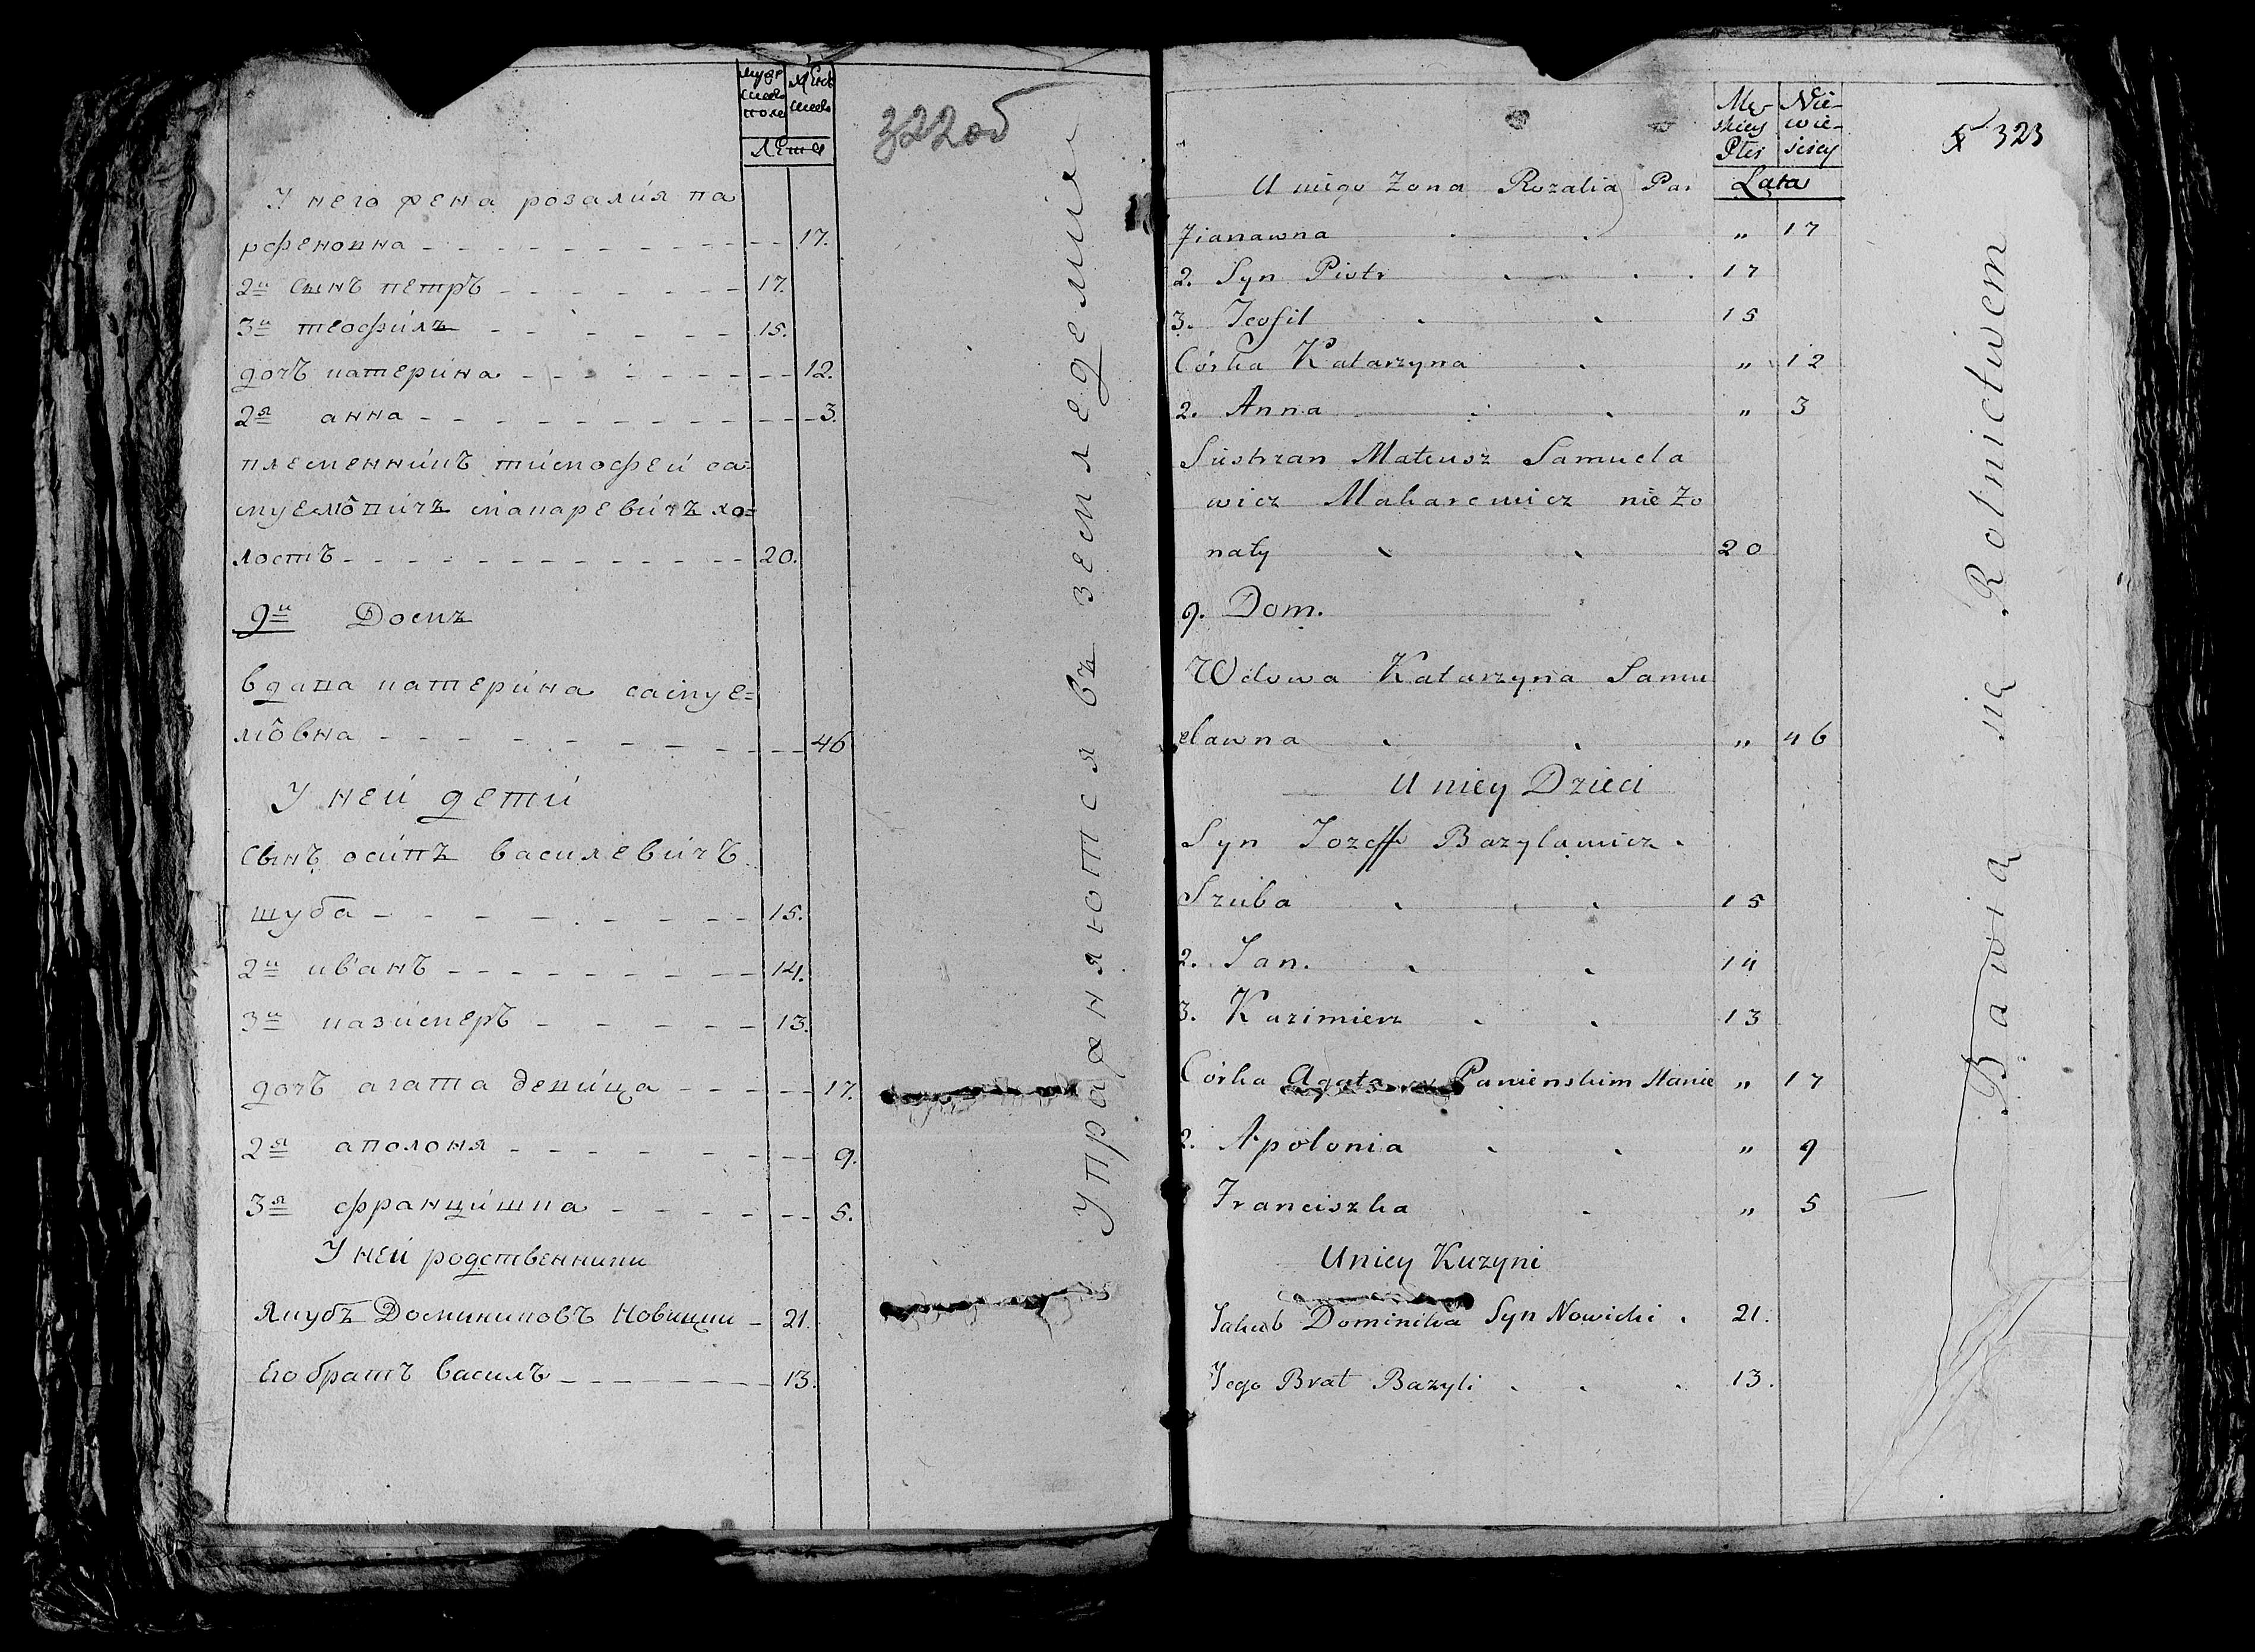 мужс
ского
поле
женс
ского
Лета
322 об
У него жена розалия па
рфеновна 17.
2й Сынъ петръ 17.
3й теофилъ 15.
дочъ катерина 12.
2я анна 3.
племенникъ тимофей са=
муелôвичъ макаревичъ хо=
лостъ 20.
9й Домъ
вдава катерина самуе=
лôвна 46
У ней дети
Сынъ осипъ василевичъ
шуба 15.
2й иванъ 14.
3й казимеръ 13.
дочъ агата девица 17.
2я аполоня 9.
3я францишка 5.
У ней родственники
Якубъ Доминиковъ Новицки 21.
Его братъ василъ 13.
Упражняются въ земледелии
Mę-
skiey
Płci
Nie-
wie-
sciey
Lata
323
U niego Zona Rozalia Par
fianawna " 17
2. Syn Piotr 17
3. Teofil 15
Córka Katarzyna " 12
2. Anna " 3
Siostrzan Mateusz Samuela
wicz Makarewicz nieżo
naty 20
9. Dom.
Wdowa Katarzyna Samu
elawna " 46
U niey Dzieci
Syn Jozeff Bazylawicz
Szuba 15
2. Jan. 14
3. Kazimierz 13
Córka Agata w Panienskim Stanie " 17
2. Apolonia " 9
Franciszka " 5
U niey Kuzyni
Jakub Dominika Syn Nowicki 21.
Jego Brat Bazyli 13.
Bawią się Rolnictwem